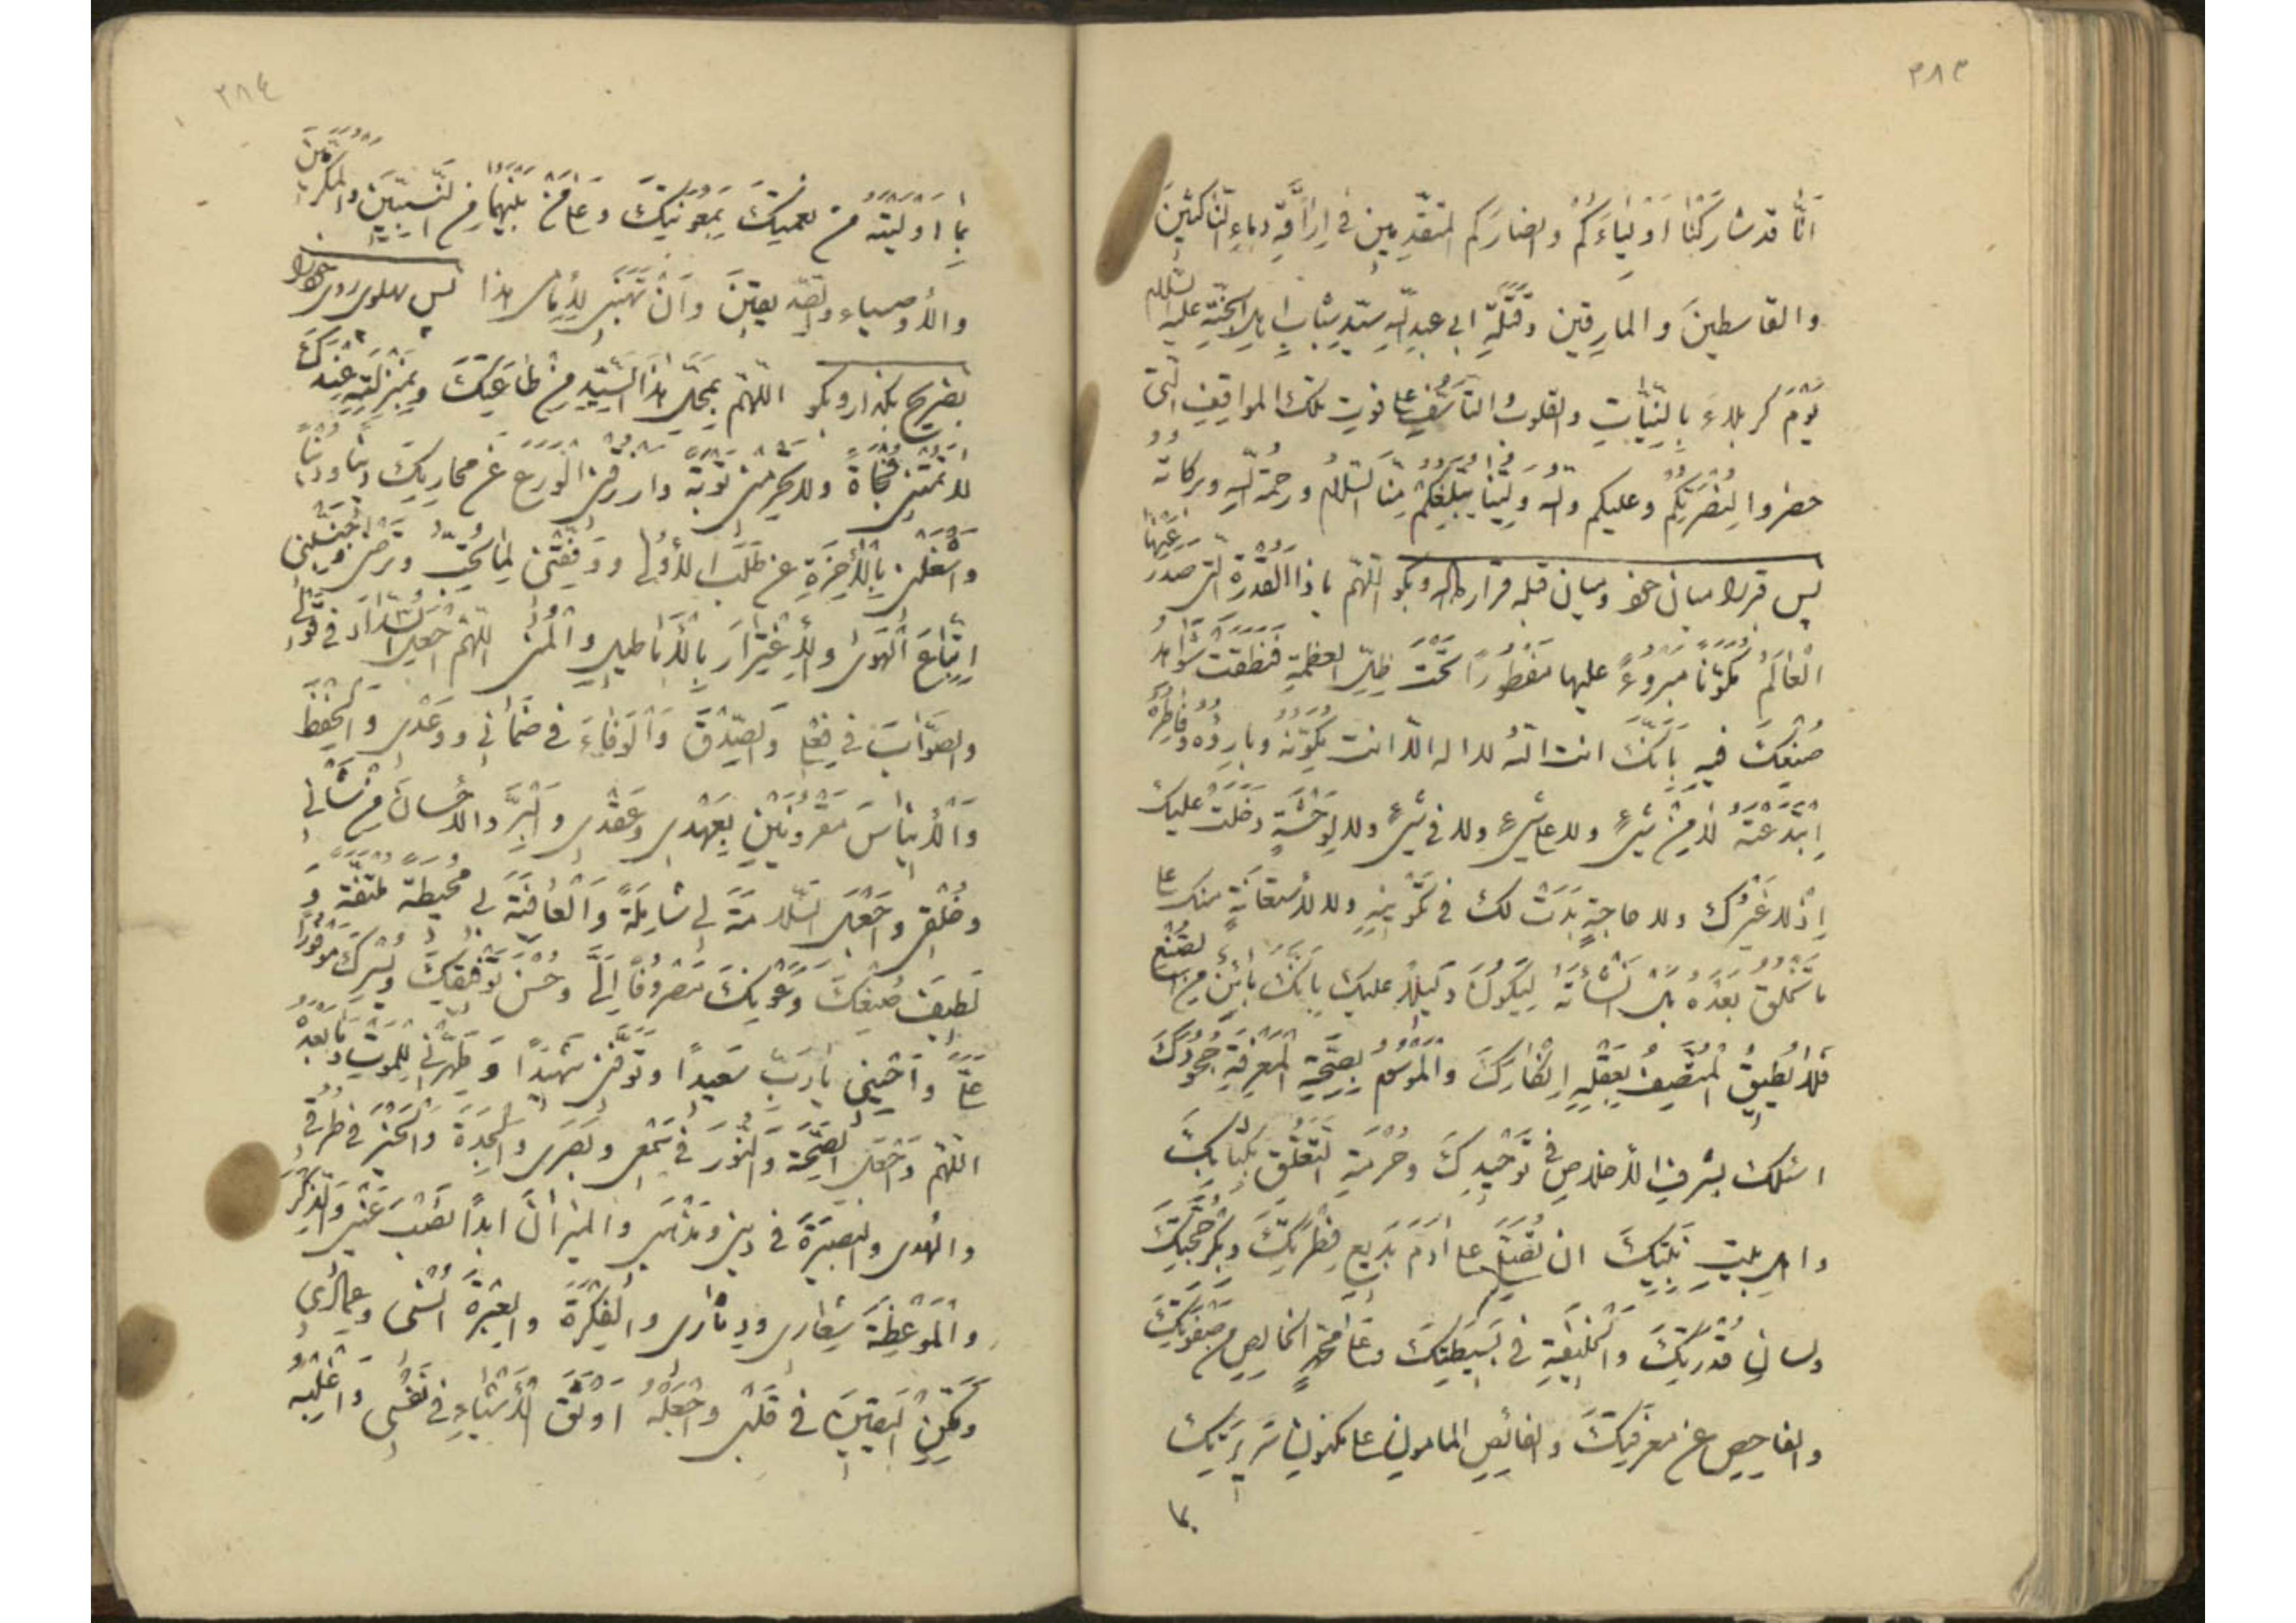 ٣٨٣
اَنَّا قد شارَكْنَا اَوْلِياءَكُمْ وانصارَكم المتقدّمينَ في اِرَاقَةِ دماءِ النّاكثينَ
والقاسطينَ والمارقينَ وقَتَلَةِ ابي عبدِ اللّهِ سيّدِ شبابِ اهلِ الجنّةِ عليه السّلام
يَوْمَ كربلاءَ بِالنِّيّاتِ والقلوبِ والتأسُّفِ على فوتِ تلك المواقِفِ الّتي
حضروا لِنُصْرَتِكُمْ وعليكم واللّهُ وَلِيُّنا يُبَلِّغُكُمْ مِنّا السّلامُ ورحمة اللّهِ وبركاته
پس قبر را ميان خود وميان قبله قرار ده وبگو اللّهمّ ياذا القُدْرَةِ الّتي صَدَرَ عَنْهَا
الْعالَمُ مُكَوَّنًا مَبْرُوءً عليها مَفْطُورًا تَحْتَ ظِلِّ العظمةِ فَنَطَقَتْ شَواهِدُ
صُنْعِكَ فيهِ بِاَنَّكَ انت اللّهُ لا اله الّا انت مُكَوِّنُهُ وبارِؤُهُ وفاطِرُهُ
اِبْتَدَعْتَهُ لا مِنْ شَيْءٍ ولا على شَيْءٍ ولا في شَيْءٍ ولا لِوَحْشَةٍ دَخَلَتْ عليك
اِذْ لا غَيْرُكَ ولا حاجةٍ بَدَتْ لك في تَكْوينِهِ ولا لاستعانَةٍ منك على
ما تَخْلُقُ بَعْدَهُ بل اَنْشَأْتَهُ لِيَكُونَ دَليلًا عليك بِاَنَّكَ بائِنٌ مِنَ الصُّنْعِ
فَلا يُطيقُ الْمُنْصِفُ بِعَقْلِهِ اِنْكارَكَ والْمَوْسُومُ بِصِحَّةِ الْمَعْرِفَةِ جُحُودَكَ
اسئلك بِشَرَفِ الاخلاصِ في تَوْحيدِكَ وحُرْمَةِ التَّعَلُّقِ بِكِتابِكَ
واهلِ بيتِ نَبِيِّكَ ان تُصَلِّيَ على آدَمَ بَديعِ فِطْرَتِكَ وبِكْرِ حُجَّتِكَ
ولسانِ قُدْرَتِكَ والْخَليفَةِ في بَسيطَتِكَ وعَلى مُحَمَّدٍ الخالِصِ مِنْ صَفْوَتِكَ
والفاحِصِ عن مَعْرِفَتِكَ والغائِصِ المأمونِ على مكنونِ سَريرَتِكَ
بما
٣٨٤
بِما اَوْلَيْتَهُ مِنْ نعمتِكَ بِمَعُونَتِكَ وعَلى مَنْ بَيْنَهُما مِنَ النَّبِيّينَ والْمُكَرَّمينَ
والأوصياءِ والصّدّيقينَ وَاَنْ تَهَبَني لِاِمامى هذا پس پهلوى روى خود را
بضريح بگذار وبگو اللّهمّ بِمَحَلِّ هذَا السَّيِّدِ مِنْ طاعَتِكَ وبِمَنْزِلَتِهِ عِنْدَكَ
لا تُمِتْني فُجاةً ولا تَحْرِمْني تَوْبَةً وارزُقْني الْوَرَعَ عَنْ محارِمِكَ دينًا ودُنْيا
واشْغَلْني بِالْأخِرَةِ عن طَلَبِ الأُولى ووَفِّقْني لِما تُحِبُّ وتَرْضى وجَنِّبْني
اِتِّباعَ الْهَوى والاِغْتِرارَ بِالاَباطيلِ والْمُنى اللّهُمَّ اجْعَلِ السَّدادَ في قَوْلي
والصَّوابَ في فِعْلي والصِّدْقَ وَالْوَفاءَ في ضَماني ووَعْدي والْحِفْظَ
وَالْايناسَ مَقْرونَيْنِ بِعَهْدي وعَقْدي والْبِرَّ والاحْسانَ مِنْ شَأْني
وخُلْقي واجْعَلِ السَّلامَةَ لي شامِلَةً والْعافِيَةَ لي مُحيطَةً مُلْتَفَّةً وَ
لَطيفَ صُنْعِكَ وعَوْنِكَ مَصْرُوفًا اِلَيَّ وحُسْنَ تَوْفيقِكَ ويُسْرَكَ مَوْفُورًا
عَلَيَّ وَاَحْيِني يا رَبِّ سَعيدًا وتَوَفَّني شَهيدًا وَطَهِّرْني لِلْمَوْتِ وما بَعْدَهُ
اللّهمّ وَاجْعَلِ الصِّحَّةَ وَالنُّورَ في سَمْعي وبَصَري والْجِدَةَ وَالْخَيْرَ في طُرُقي
والْهُدى والبَصيرَةَ في ديني ومَذْهَبي والميزانَ ابدًا نَصْبَ عَيْني والذِّكْرَ
والْمَوْعِظَةَ شِعاري ودِثاري والْفِكْرَةَ والْعِبْرَةَ اُنْسي وعِمادي
ومَكِّنِ الْيَقينَ في قَلْبي واجْعَلْهُ اَوْثَقَ الأَشْياءِ في نَفْسي وَاَغْلِبْهُ